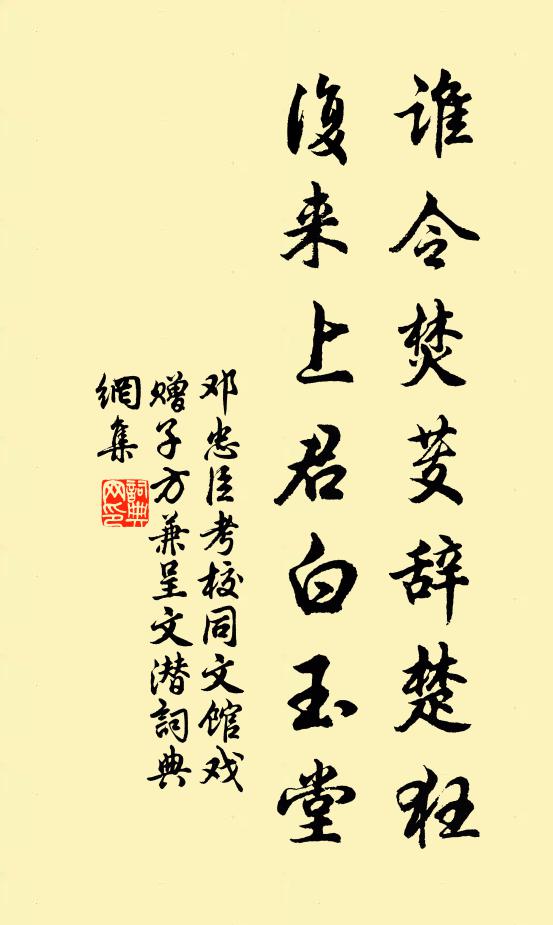 谁令焚芰辞楚狂
复来上君白玉堂
邓忠臣考校同文馆戏
赠子方兼呈文潜詞典
網集
詞典網印